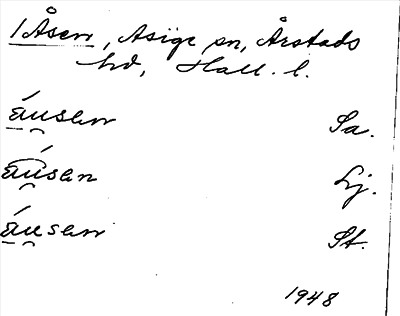 1 Åsen, Asige sn, Årstads
hd, Hall. l.
áu̯sen Sa.
áu̯sen Lj.
áu̯sen St.
1948